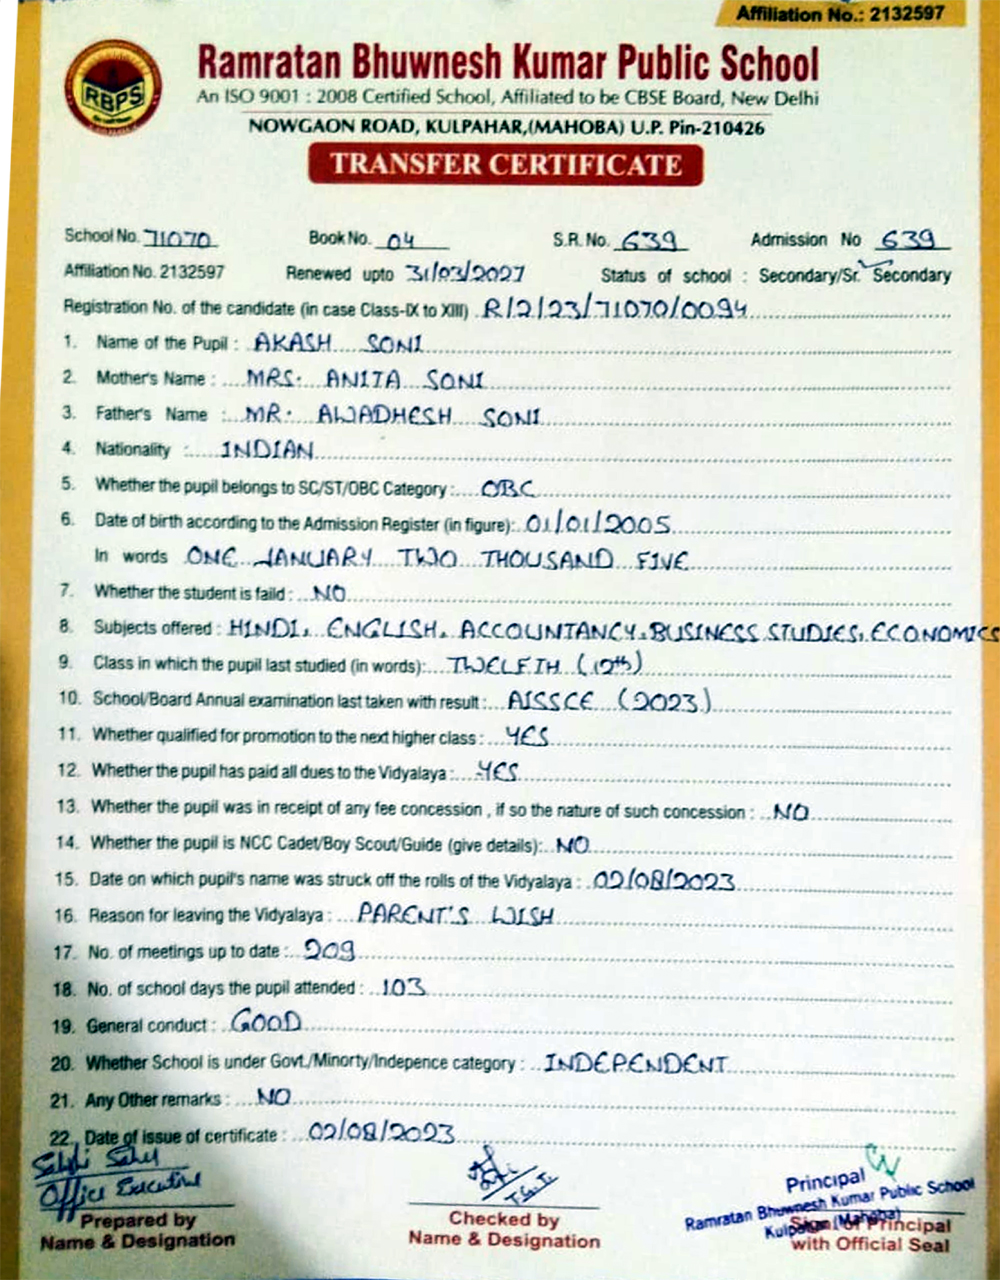 Affiliation No.: 2132597
RBPS
Ramratan Bhuwnesh Kumar Public School
An ISO 9001 : 2008 Certified School, Affiliated to be CBSE Board, New Delhi
NOWGAON ROAD, KULPAHAR,(MAHOBA) U.P. Pin-210426
TRANSFER CERTIFICATE
School No. 71070 Book No. 04 S.R. No. 639 Admission No 639
Affiliation No. 2132597 Renewed upto 31/03/2027 Status of school : Secondary/Sr. Secondary
Registration No. of the candidate (in case Class-IX to XIII) R/2/23/71070/0094
1. Name of the Pupil : AKASH SONI
2. Mother's Name : MRS. ANITA SONI
3. Father's Name : MR. AWADHESH SONI
4. Nationality : INDIAN
5. Whether the pupil belongs to SC/ST/OBC Category : OBC
6. Date of birth according to the Admission Register (in figure): 01/01/2005
In words ONE JANUARY TWO THOUSAND FIVE
7. Whether the student is faild : NO
8. Subjects offered : HINDI, ENGLISH, ACCOUNTANCY, BUSINESS STUDIES, ECONOMICS
9. Class in which the pupil last studied (in words): TWELFTH (12th)
10. School/Board Annual examination last taken with result : AISSCE (2023)
11. Whether qualified for promotion to the next higher class : YES
12. Whether the pupil has paid all dues to the Vidyalaya : YES
13. Whether the pupil was in receipt of any fee concession , if so the nature of such concession : NO
14. Whether the pupil is NCC Cadet/Boy Scout/Guide (give details): NO
15. Date on which pupil's name was struck off the rolls of the Vidyalaya : 02/08/2023
16. Reason for leaving the Vidyalaya : PARENT'S WISH
17. No. of meetings up to date : 209
18. No. of school days the pupil attended : 103
19. General conduct : GOOD
20. Whether School is under Govt./Minorty/Indepence category : INDEPENDENT
21. Any Other remarks : NO
22. Date of issue of certificate : 02/08/2023
Office Executive
Prepared by
Name & Designation
Checked by
Name & Designation
Principal
Ramratan Bhuwnesh Kumar Public School
Kulpahar (Mahoba)
Sign. of Principal
with Official Seal